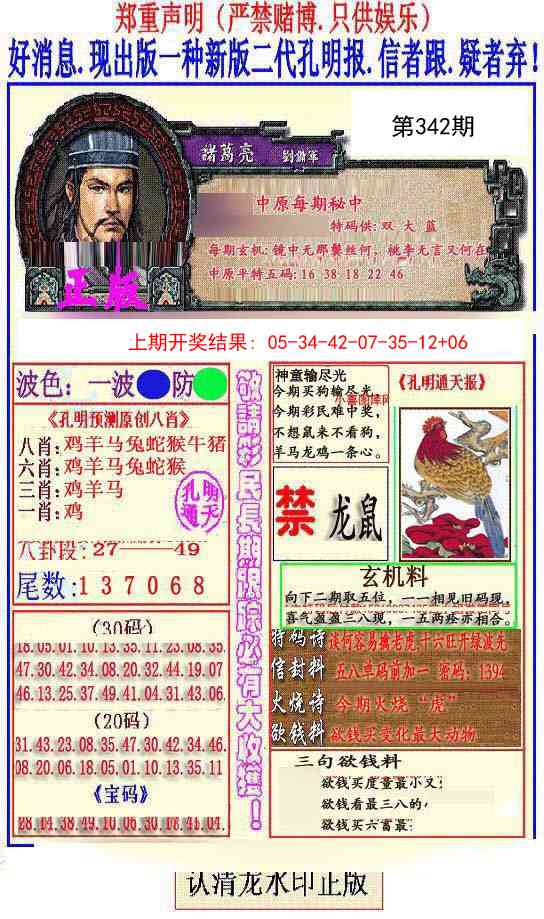 郑重声明（严禁赌博.只供娱乐）
好消息.现出版一种新版二代孔明报.信者跟.疑者弃！
第342期
諸葛亮
中原每期秘中
特码供: 双 大 蓝
每期玄机: 镜中无那鬓丝何, 桃李无言又何在
中原平特五码: 16 38 18 22 46
正版
上期开奖结果: 05-34-42-07-35-12+06
波色: 一波 防
《孔明预测原创八肖》
八肖: 鸡羊马兔蛇猴牛猪
六肖: 鸡羊马兔蛇猴
三肖: 鸡羊马
一肖: 鸡
孔明通天
八卦段: 27——49
尾数: 1 3 7 0 6 8
(30码)
18.05.01.10.13.35.11.23.08.35.
47.30.42.34.08.20.32.44.19.07
46.13.25.37.49.41.04.31.43.06.
(20码)
31.43.23.08.35.47.30.42.34.46.
08.20.06.18.05.01.10.13.35.11
《宝码》
28.14.38.49.10.06.30.18.41.04.
敬請彩民長期跟踪必有大收獲！
神童输尽光
今期买狗输尽光
今期彩民难中奖，
不想鼠来不看狗，
羊马龙鸡一条心。
《孔明通天报》
禁 龙鼠
玄机料
向下二期取五位，一一相见旧码现，
喜气盈盈三八现，一五两疹亦相合。
特码诗 谈何容易擒老虎十六旺开绿波先
信封料 五八单码前加一 密码: 1394
火烧诗 今期火烧“虎”
欲钱料 欲钱买变化最大动物
三句欲钱料
欲钱买度量最小叉;
欲钱看最三八的
欲钱买六富最:
认清龙水印正版